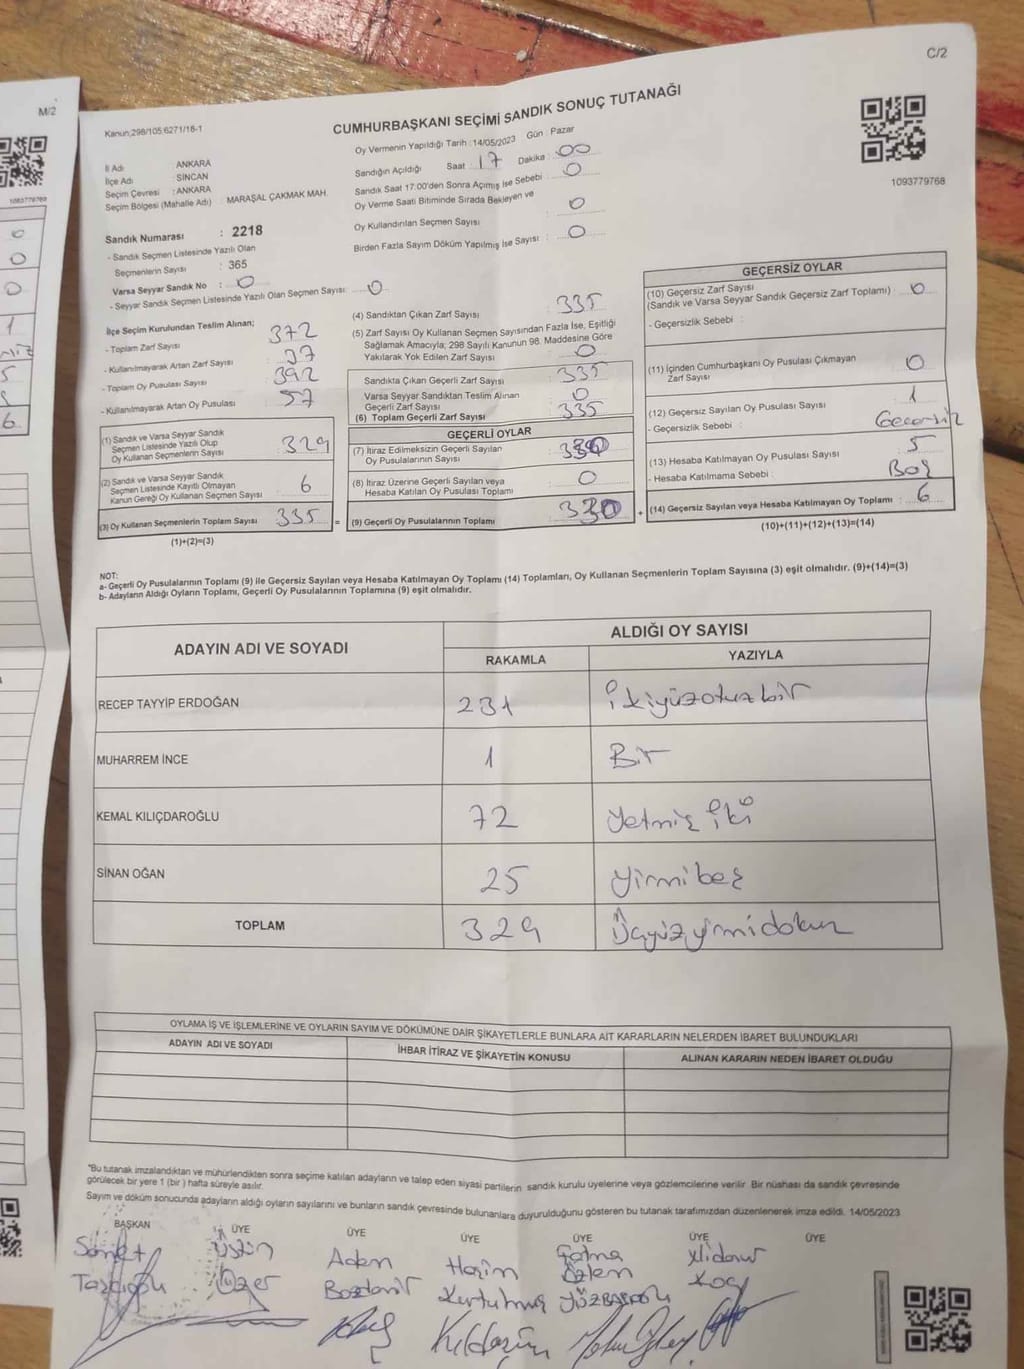 C/2
M/2
Kanun;298/105;6271/18-1
CUMHURBAŞKANI SEÇİMİ SANDIK SONUÇ TUTANAĞI
1093779768
İl Adı : ANKARA
İlçe Adı : SİNCAN
Seçim Çevresi : ANKARA
Seçim Bölgesi (Mahalle Adı) : MARAŞAL ÇAKMAK MAH.
Oy Vermenin Yapıldığı Tarih :14/05/2023 Gün : Pazar
Sandığın Açıldığı Saat : 17 Dakika : 00
Sandık Saat 17:00'den Sonra Açımış İse Sebebi : 0
Oy Verme Saati Bitiminde Sırada Bekleyen ve
Oy Kullandırılan Seçmen Sayısı : 0
Birden Fazla Sayım Döküm Yapılmış İse Sayısı : 0
Sandık Numarası : 2218
- Sandık Seçmen Listesinde Yazılı Olan
Seçmenlerin Sayısı : 365
Varsa Seyyar Sandık No : 0
- Seyyar Sandık Seçmen Listesinde Yazılı Olan Seçmen Sayısı: 0
İlçe Seçim Kurulundan Teslim Alınan;
- Toplam Zarf Sayısı : 372
- Kullanılmayarak Artan Zarf Sayısı : 37
- Toplam Oy Pusulası Sayısı : 392
- Kullanılmayarak Artan Oy Pusulası : 57
(1) Sandık ve Varsa Seyyar Sandık
Seçmen Listesinde Yazılı Olup
Oy Kullanan Seçmenlerin Sayısı : 329
(2) Sandık ve Varsa Seyyar Sandık
Seçmen Listesinde Kayıtlı Olmayan
Kanun Gereği Oy Kullanan Seçmen Sayısı : 6
(3) Oy Kullanan Seçmenlerin Toplam Sayısı : 335
(1)+(2)=(3)
(4) Sandıktan Çıkan Zarf Sayısı : 335
(5) Zarf Sayısı Oy Kullanan Seçmen Sayısından Fazla İse, Eşitliği
Sağlamak Amacıyla; 298 Sayılı Kanunun 98. Maddesine Göre
Yakılarak Yok Edilen Zarf Sayısı : 0
Sandıkta Çıkan Geçerli Zarf Sayısı : 335
Varsa Seyyar Sandıktan Teslim Alınan
Geçerli Zarf Sayısı : 0
(6) Toplam Geçerli Zarf Sayısı : 335
GEÇERLİ OYLAR
(7) İtiraz Edilmeksizin Geçerli Sayılan
Oy Pusulalarının Sayısı :
(8) İtiraz Üzerine Geçerli Sayılan veya
Hesaba Katılan Oy Pusulası Toplamı : 0
= (9) Geçerli Oy Pusulalarının Toplamı : 330
GEÇERSİZ OYLAR
(10) Geçersiz Zarf Sayısı : 0
(Sandık ve Varsa Seyyar Sandık Geçersiz Zarf Toplamı)
- Geçersizlik Sebebi :
(11) İçinden Cumhurbaşkanı Oy Pusulası Çıkmayan
Zarf Sayısı : 0
(12) Geçersiz Sayılan Oy Pusulası Sayısı : 1
- Geçersizlik Sebebi : Geçersiz
(13) Hesaba Katılmayan Oy Pusulası Sayısı : 5
- Hesaba Katılmama Sebebi : Boş
+ (14) Geçersiz Sayılan veya Hesaba Katılmayan Oy Toplamı : 6
(10)+(11)+(12)+(13)=(14)
NOT:
a- Geçerli Oy Pusulalarının Toplamı (9) ile Geçersiz Sayılan veya Hesaba Katılmayan Oy Toplamı (14) Toplamları, Oy Kullanan Seçmenlerin Toplam Sayısına (3) eşit olmalıdır. (9)+(14)=(3)
b- Adayların Aldığı Oyların Toplamı, Geçerli Oy Pusulalarının Toplamına (9) eşit olmalıdır.
ADAYIN ADI VE SOYADI ALDIĞI OY SAYISI
RAKAMLA YAZIYLA
RECEP TAYYİP ERDOĞAN 231 ikiyüzotuzbir
MUHARREM İNCE 1 Bir
KEMAL KILIÇDAROĞLU 72 Yetmiş iki
SİNAN OĞAN 25 yirmibeş
TOPLAM 329 Üçyüzyirmidokuz
OYLAMA İŞ VE İŞLEMLERİNE VE OYLARIN SAYIM VE DÖKÜMÜNE DAİR ŞİKAYETLERLE BUNLARA AİT KARARLARIN NELERDEN İBARET BULUNDUKLARI
ADAYIN ADI VE SOYADI İHBAR İTİRAZ VE ŞİKAYETİN KONUSU ALINAN KARARIN NEDEN İBARET OLDUĞU
*Bu tutanak imzalandıktan ve mühürlendikten sonra seçime katılan adayların ve talep eden siyasi partilerin sandık kurulu üyelerine veya gözlemcilerine verilir. Bir nüshası da sandık çevresinde
görülecek bir yere 1 (bir ) hafta süreyle asılır.
Sayım ve döküm sonucunda adayların aldığı oyların sayılarını ve bunların sandık çevresinde bulunanlara duyurulduğunu gösteren bu tutanak tarafımızdan düzenlenerek imza edildi. 14/05/2023
BAŞKAN ÜYE ÜYE ÜYE ÜYE ÜYE ÜYE
Üstün Adem Fatma
Özer Bozdemir Kurtulmuş Özlem YÜZBAŞIOĞLU Koç